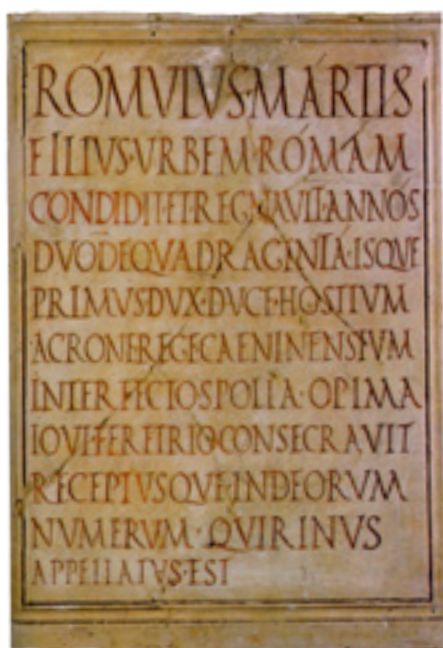 RÓMVLVS·MÁRTIS
FILIVS·VRBEM·RÓMAM
CONDIDIT·ET·REGNAVIT·ANNÓS
DVODEQVADRAGINTA·ISQVE
PRIMVS·DVX·DVCE·HOSTIVM
ACRONE·REGE·CAENINENSIVM
INTERFECTO·SPOLIA·OPIMA
IOVI·FERETRIO·CONSECRAVIT
RECEPTVSQVE·IN·DEORVM
NVMERVM·QVIRINVS
APPELLATVS·EST